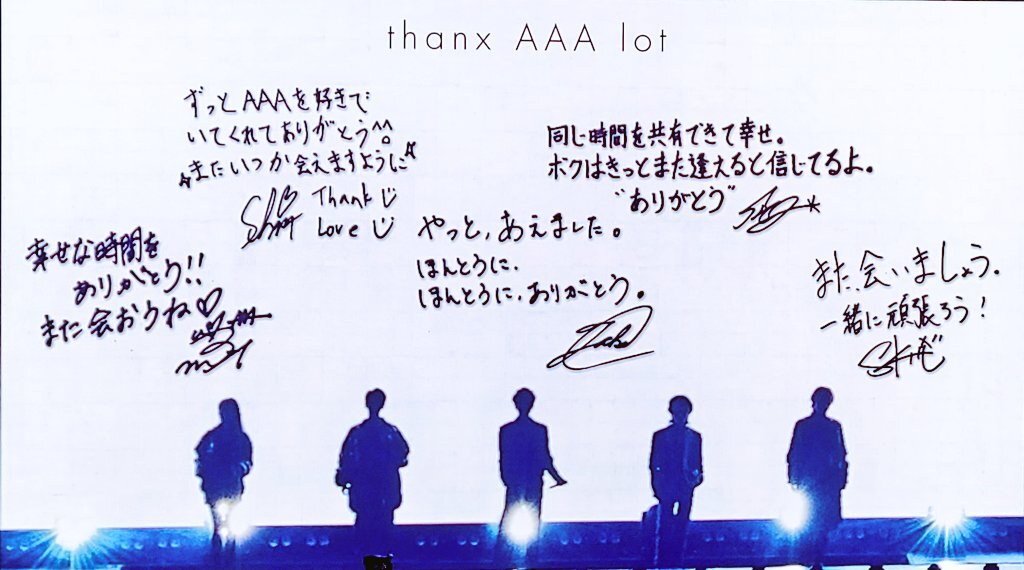 thanx AAA lot
ずっとAAAを好きで
いてくれてありがとう^^
またいつか会えますように
Thank
Love
同じ時間を共有できて幸せ。
ボクはきっとまた逢えると信じてるよ。
"ありがとう"
幸せな時間を
ありがとう!!
また会おうね♡
やっと、あえました。
ほんとうに、
ほんとうに、ありがとう。
また、会いましょう。
一緒に頑張ろう!